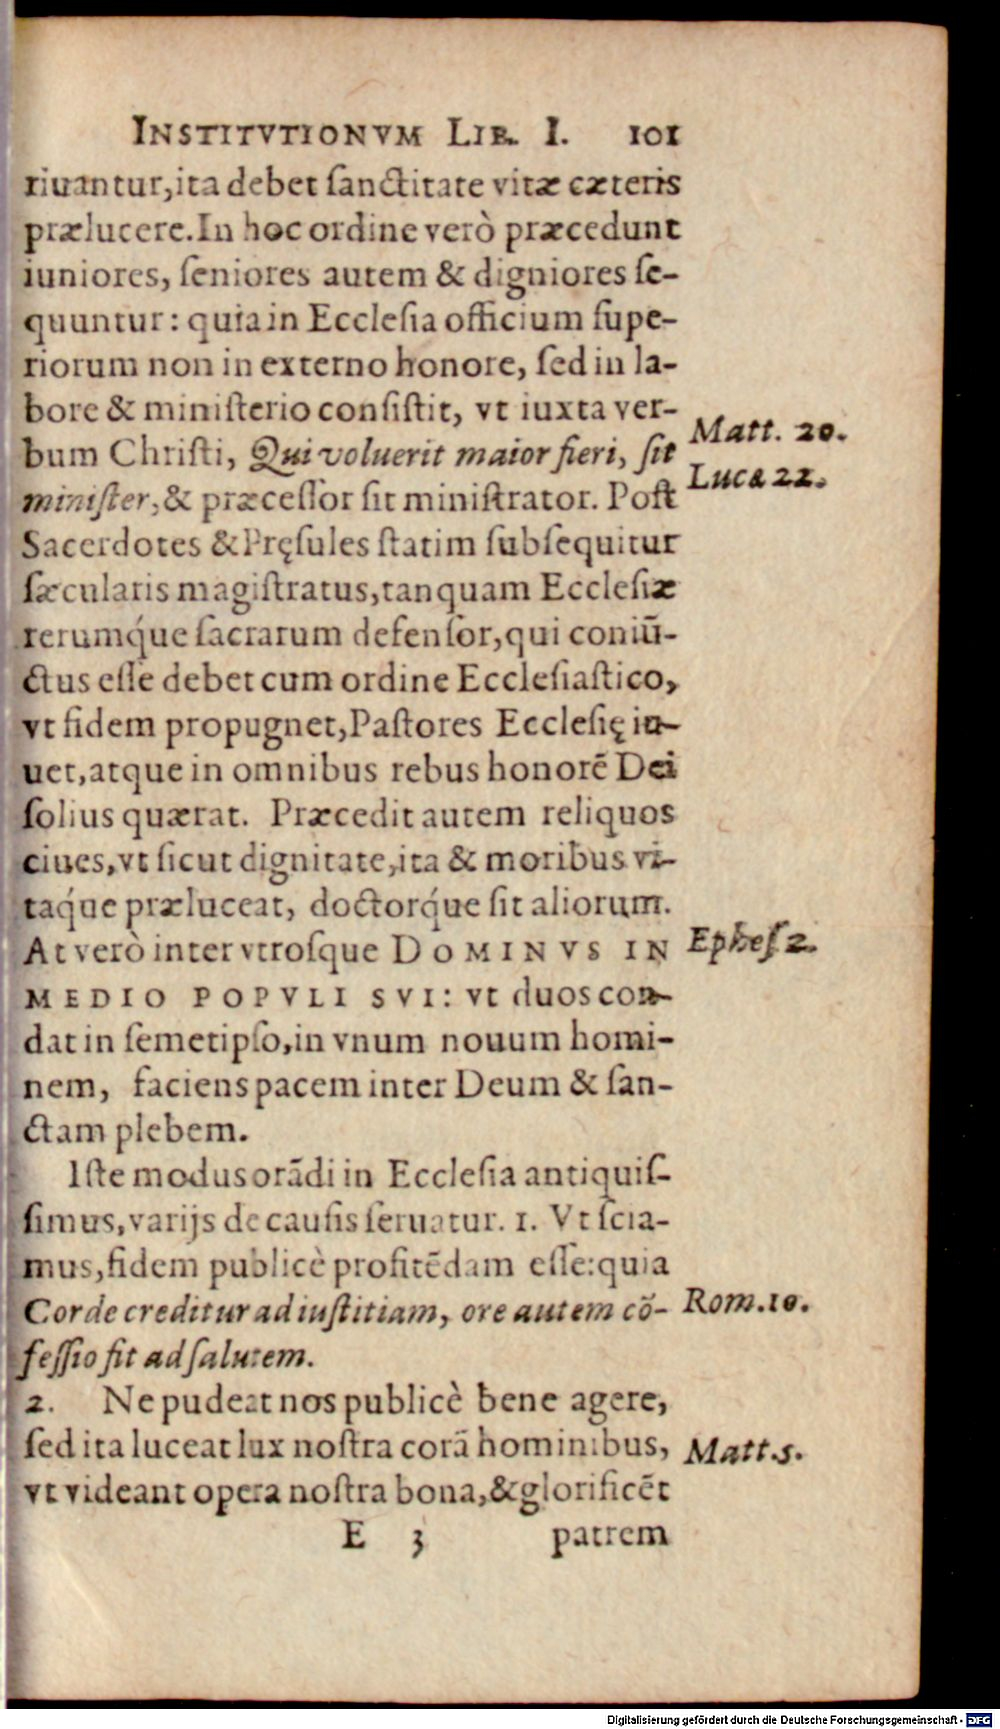 INSTITVTIONVM LIB. I. 101
riuantur,ita debet ſanctitate vitæ cæteris
prælucere.In hoc ordine verò præcedunt
iuniores, ſeniores autem & digniores ſe-
quuntur: quia in Eccleſia officium ſupe-
riorum non in externo honore, ſed in la-
bore & miniſterio conſiſtit, vt iuxta ver-
bum Chriſti, Qui voluerit maior fieri, ſit
Matt. 20.
miniſter,& præceſſor ſit miniſtrator. Poſt
Lucæ 22.
Sacerdotes & Pręſules ſtatim ſubſequitur
ſæcularis magiſtratus,tanquam Eccleſiæ
rerumq́ue ſacrarum defenſor,qui coniū-
ctus eſſe debet cum ordine Eccleſiaſtico,
vt fidem propugnet,Paſtores Eccleſię iu-
uet,atque in omnibus rebus honorē Dei
ſolius quærat. Præcedit autem reliquos
ciues,vt ſicut dignitate,ita & moribus vi-
taq́ue præluceat, doctorq́ue ſit aliorum.
At verò inter vtroſque DOMINVS IN
Epheſ. 2.
MEDIO POPVLI SVI: vt duos con-
dat in ſemetipſo,in vnum nouum homi-
nem, faciens pacem inter Deum & ſan-
ctam plebem.
Iſte modus orādi in Eccleſia antiquiſ-
ſimus,varijs de cauſis ſeruatur. 1. Vt ſcia-
mus,fidem publicè profitēdam eſſe:quia
Corde creditur ad iuſtitiam, ore autem cō-
Rom.10.
feſſio fit ad ſalutem.
2. Ne pudeat nos publicè bene agere,
ſed ita luceat lux noſtra corā hominibus,
Matt.5.
vt videant opera noſtra bona,&glorificēt
E 3 patrem
Digitalisierung gefördert durch die Deutsche Forschungsgemeinschaft - DFG